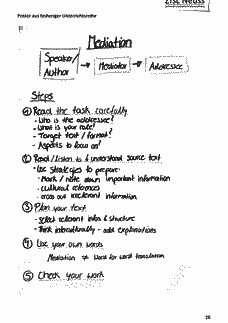 ZfsL Neuss
Poster aus bisheriger Unterrichtsreihe
Mediation
Speaker/ Author → Mediator → Addressee
Steps
① Read the task carefully
- Who is the addressee?
- What is your role?
- Target text / format?
- Aspects to focus on?
② Read/listen to & understand source text
- Use strategies to prepare:
- Mark / note down important information
- cultural references
- cross out irrelevant information
③ Plan your text
- select relevant infos & structure
- Think interculturally - add explanations
④ Use your own words
Mediation ≠ Word for word translation
⑤ Check your work
28